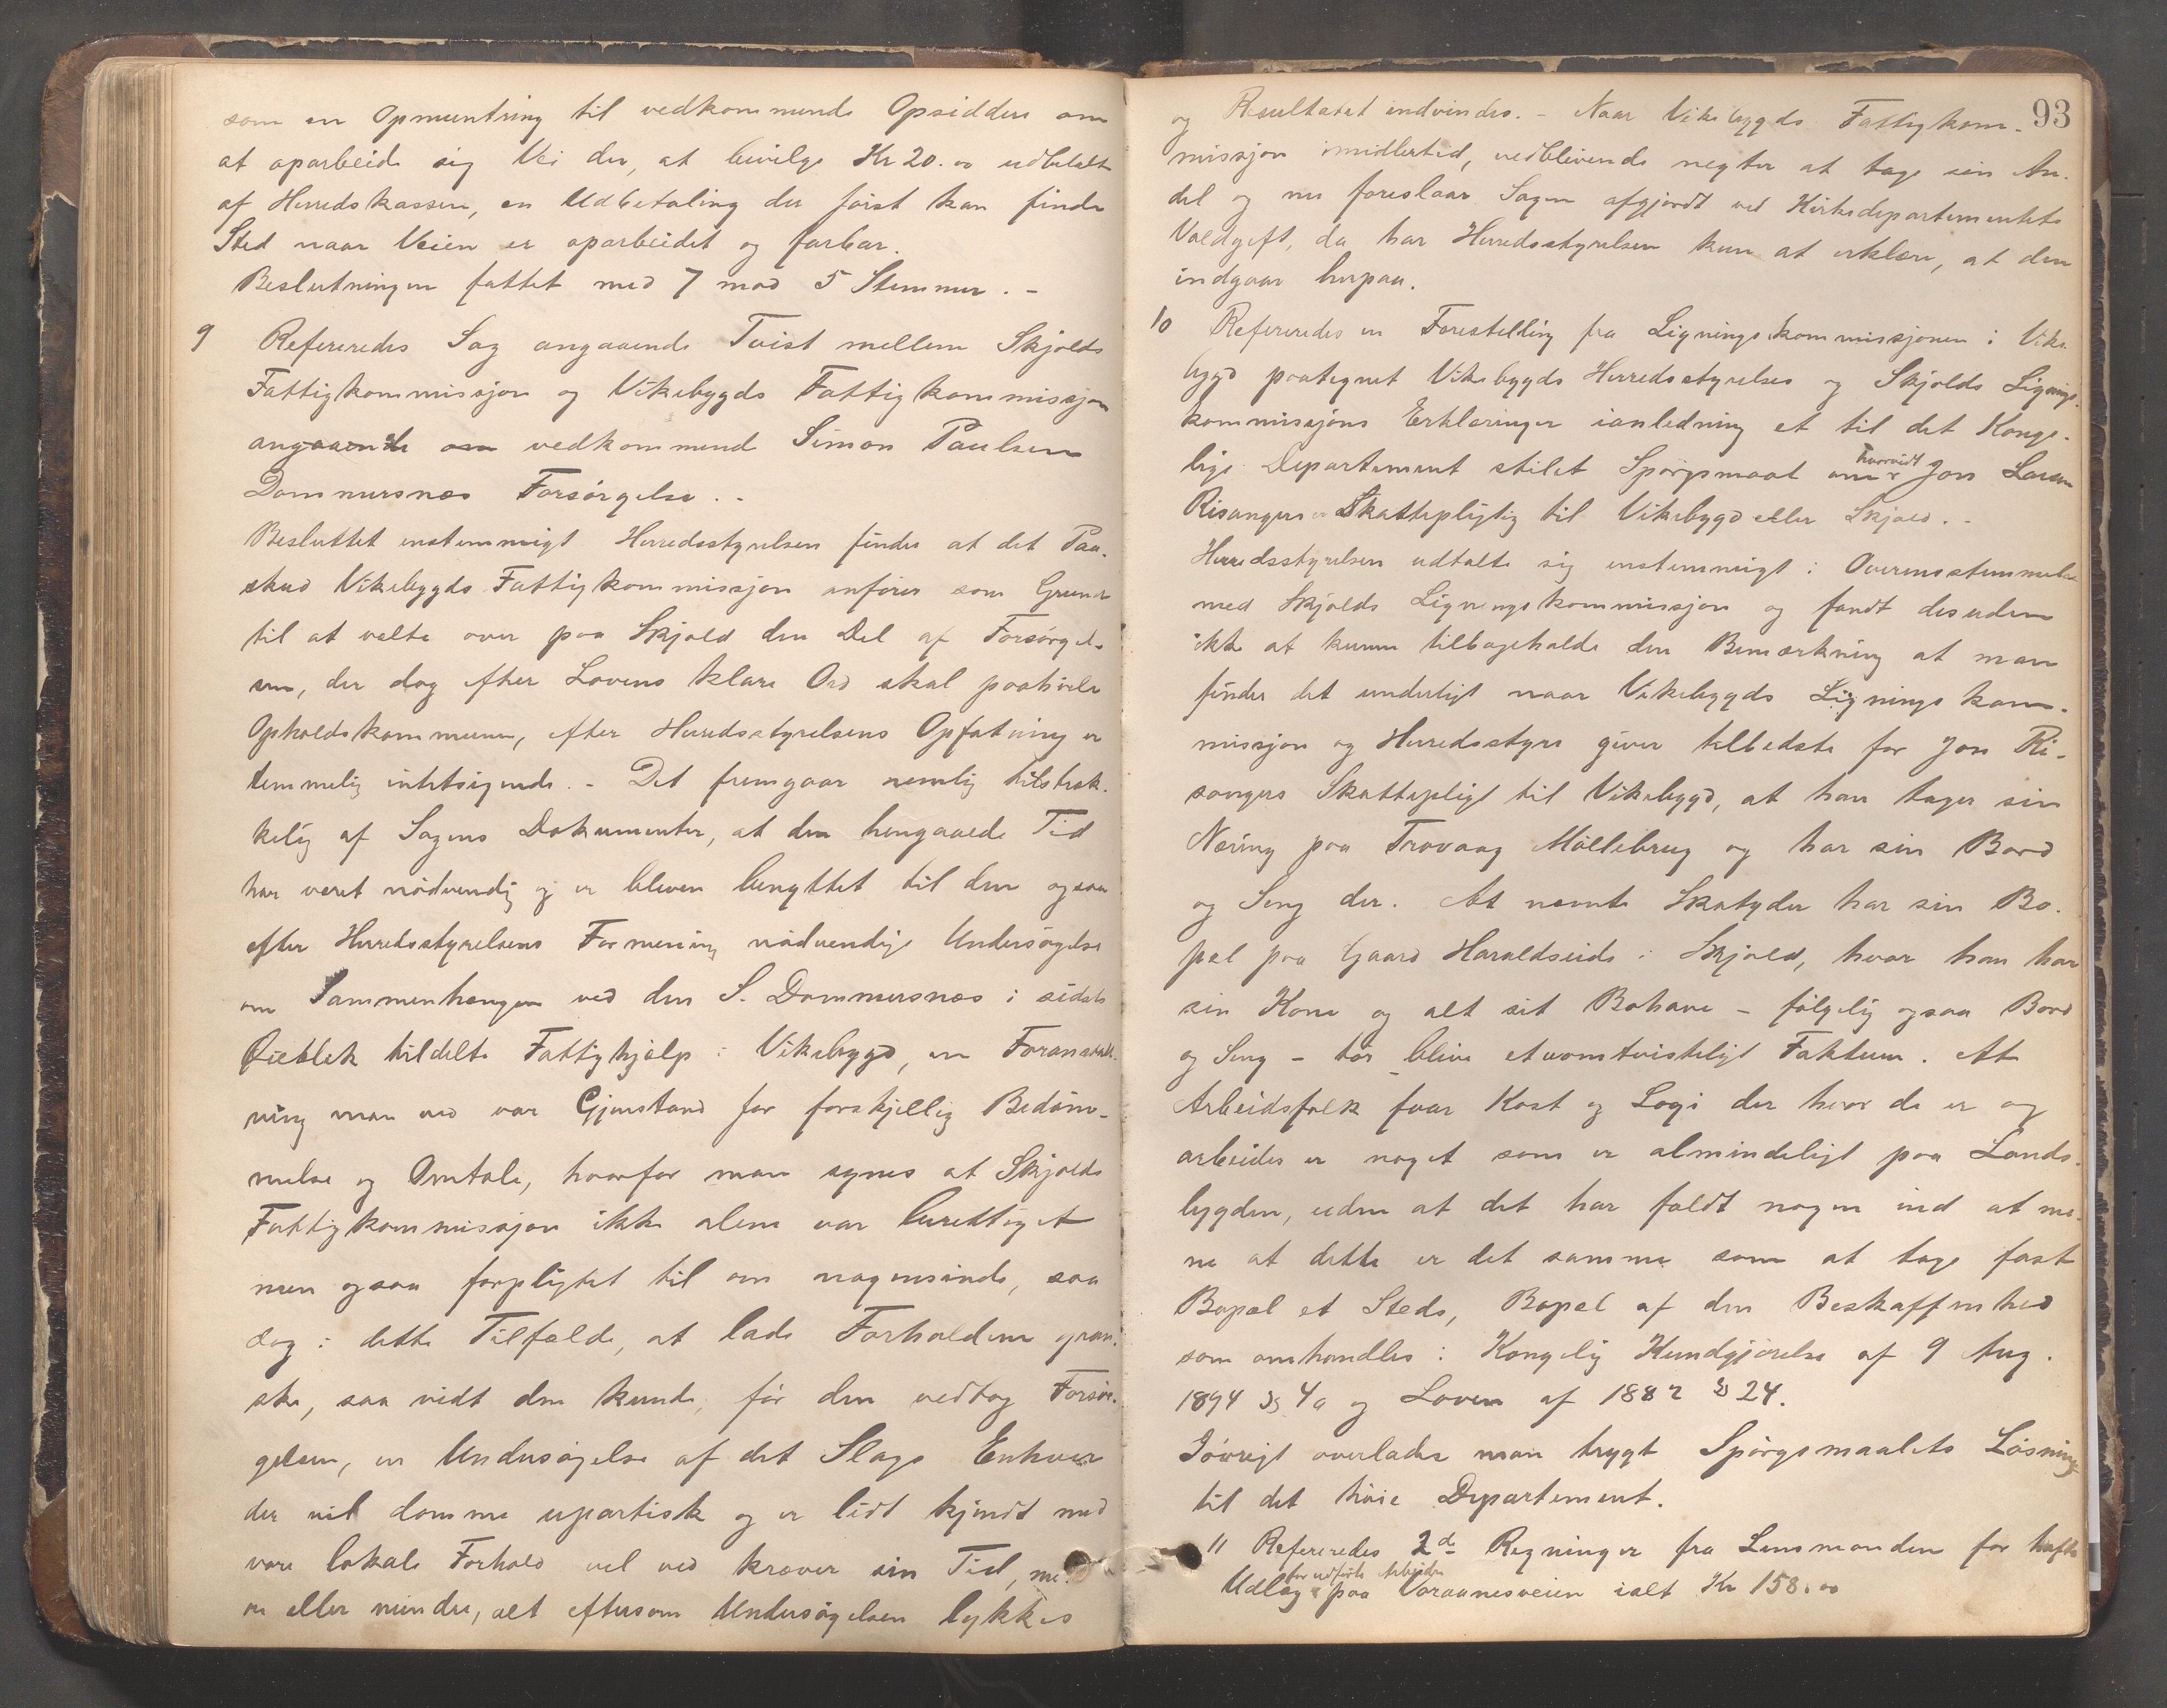 som en Opmuntring til vedkommende Opsiddere om
at oparbeide sig Vei der, at bevilge Kr 20.00 udbetalt
af Herredskassen, en Udbetaling der først kan finde
Sted naar Veien er oparbeidet og farbar.
Beslutningen fattet med 7 mod 5 Stemmer. -
9 Refereredes Sag angaaende Tvist mellem Skjolds
Fattigkommissjon og Vikebygds Fattigkommissjon
angaaende om vedkommende Simon Paulsen
Dommersnes Forsørgelse. -
Besluttet enstemmigt Herredsstyrelsen finder at det Paa-
skud Vikebygds Fattigkommissjon anfører som Grund
til at velte over paa Skjold den Del af Forsørgel-
sen, der dog efter Lovens klare Ord skal paahvile
Opholdskommunen, efter Herredsstyrelsens Opfatning er
temmelig intetsigende. - Det fremgaar nemlig tilstræk-
kelig af Sagens Dokumenter, at den hengaaede Tid
har været nødvendig og er bleven benyttet til den ogsaa
efter Herredsstyrelsens Formening nødvendige Undersøgelse
om Sammenhængen ved den S. Dommersnes i sidste
Øieblik tildelte Fattighjælp i Vikebygd, en Foranstalt-
ning man ved var Gjenstand for forskjellig Bedøm-
melse og Omtale, hvorfor man synes at Skjolds
Fattigkommissjon ikke alene var berettiget
men ogsaa forpligtet til om nogensinde, saa
dog i dette Tilfælde, at lade Forholdene gran-
ske, saa vidt den kunde, før den vedtog Forsør-
gelsen, en Undersøgelse af det Slags Enhver
der vil dømme upartisk og er lidt kjendt med
vore lokale Forhold vel ved kræver sin Tid, me-
re eller mindre, alt eftersom Undersøgelsen lykkes
93
og Resultatet indvindes. - Naar Vikebygds Fattigkom-
missjon imidlertid, vedblivende negter at tage sin An-
del og nu foreslaar Sagen afgjordt ved Kirkedepartementets
Voldgift, da har Herredsstyrelsen kun at erklære, at den
indgaar herpaa.
10 Refereredes en Forestilling fra Ligningskommissjonen i Vike-
bygd paategnet Vikebygds Herredsstyrelses og Skjolds Lignings-
kommissjons Erklæringer ianledning et til det Konge-
lige Departement stilet Spørgsmaal om hvorvidt Jon Larsen
Risanger er Skattepligtig til Vikebygd eller Skjold. -
Herredsstyrelsen udtalte sig enstemmigt i Overensstemmelse
med Skjolds Ligningskommissjon og fandt desuden
ikke at kunne tilbageholde den Bemærkning at man
finder det underligt naar Vikebygds Ligningskom-
missjon og Herredsstyre giver tilbedste for Jon Ri-
sangers Skattepligt til Vikebygd, at han tager sin
Næring paa Trovaag Møllebrug og har sin Bord
og Seng der. At nemte Skatyder har sin Bo-
pæl paa Gaard Haraldseide i Skjold, hvor han har
sin Kone og alt sit Bohave - følgelig ogsaa Bord
og Seng - tør blive et uomtvisteligt Faktum. At
Arbeidsfolk faar Kost og Logi der hvor de er og
arbeider er noget som er almindeligt paa Lands-
bygden, uden at det har faldt nogen ind at me-
ne at dette er det samme som at tage fast
Bopæl et Steds, Bopæl af den Beskaffenhed
som omhandles i Kongelig Kundgjørelse af 9 Aug.
1894 § 4a og Loven af 1882 § 24.
Iøvrigt overlader man trygt Spørgsmaalets Løsning
til det høie Departement.
11 Refereredes 2de Regninger fra Lensmanden for hafte
Udlæg for udførte Arbeider paa Voraanesveien ialt Kr 158.00